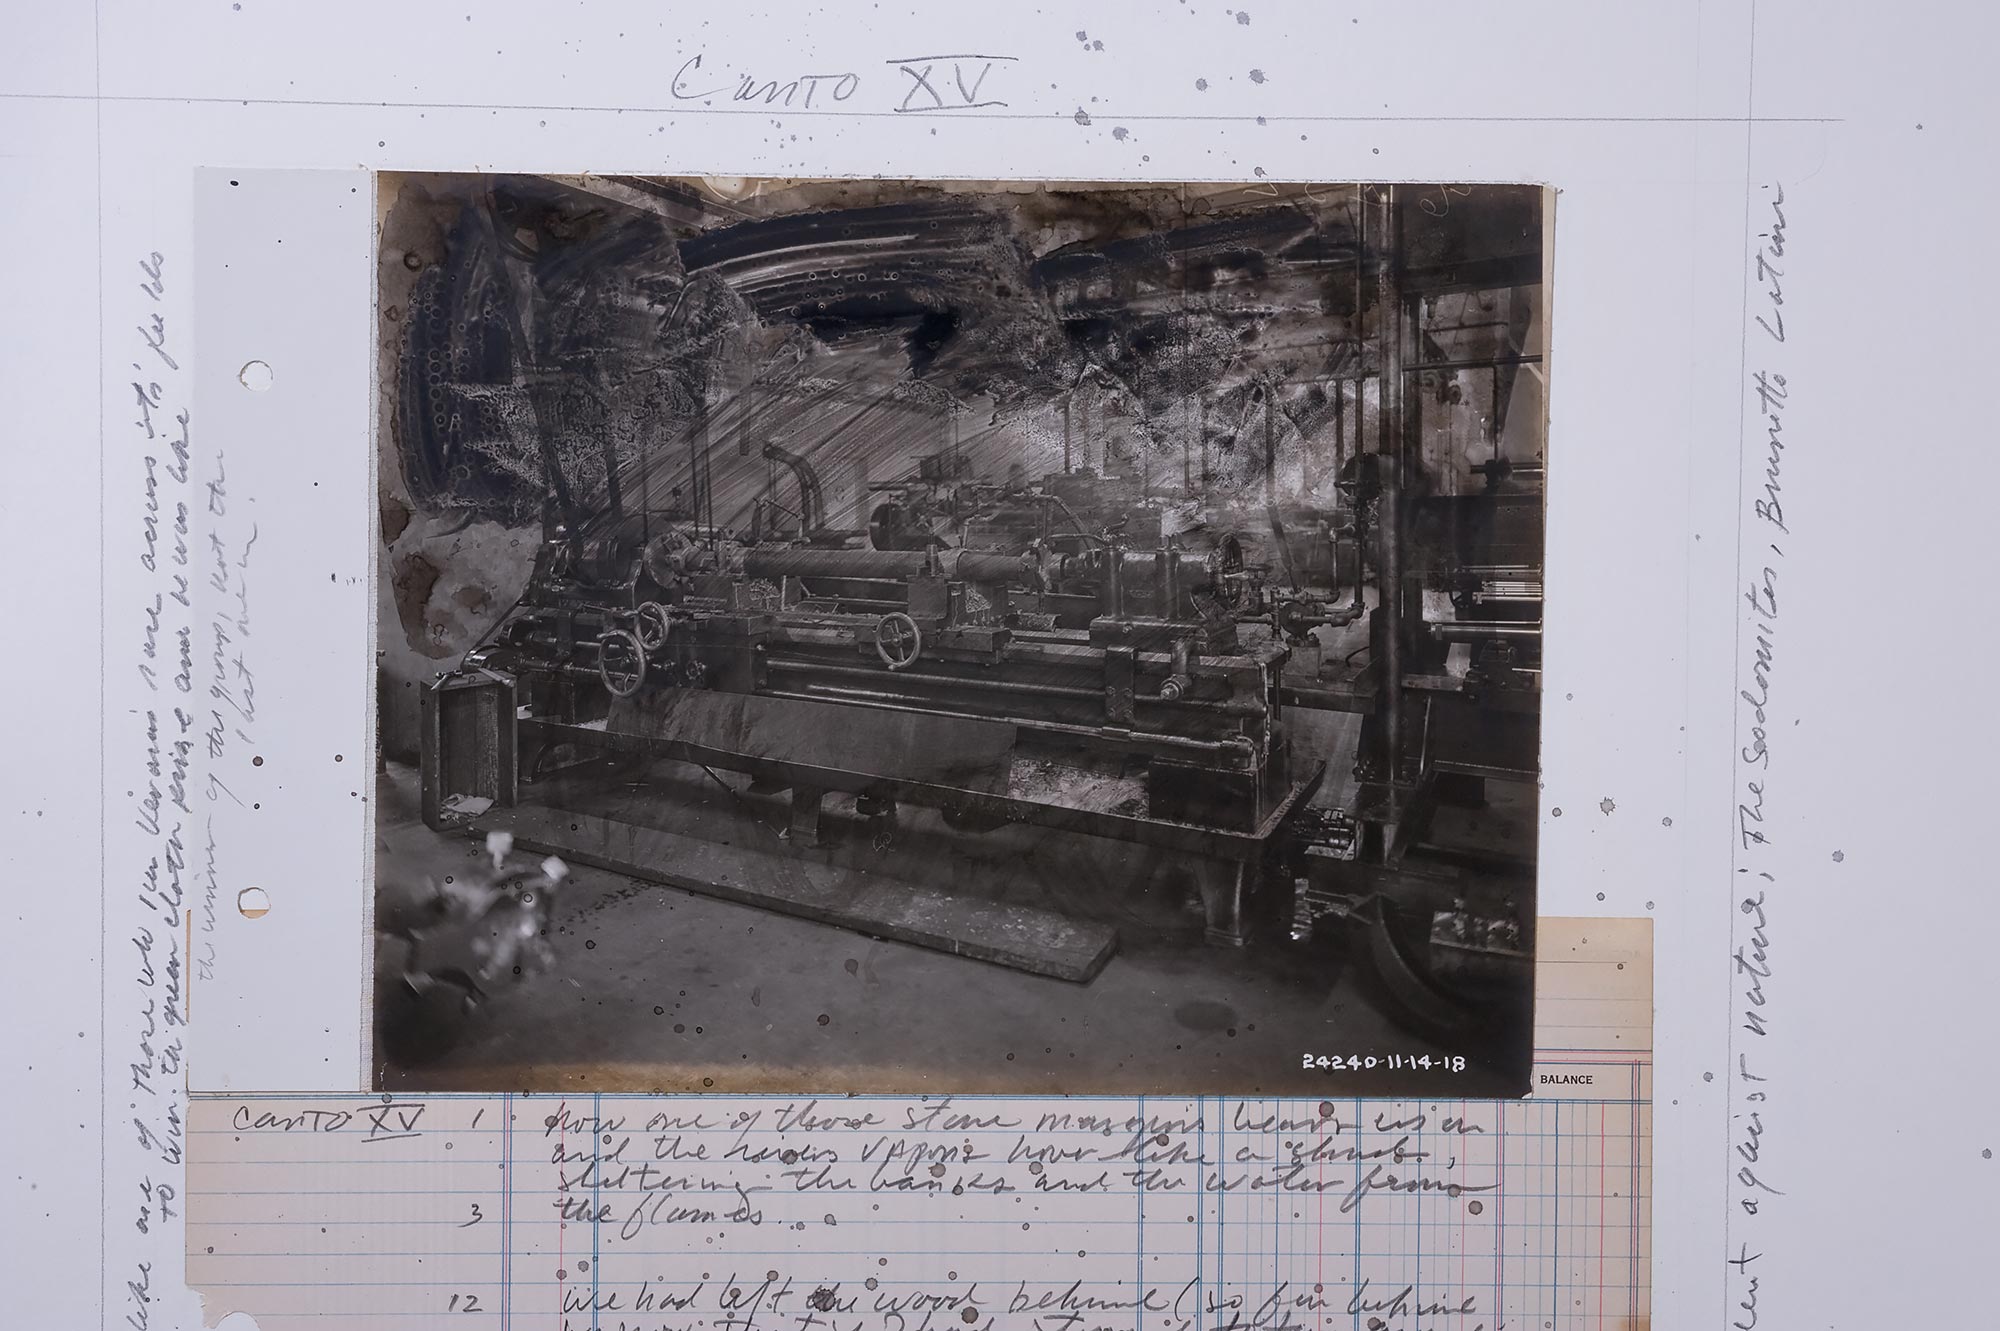 Canto XV
like one of those who in Verona's race across its' fields
to win the green cloth prize and he was like
the winner of the group, not the
last one in.
24240-11-14-18
BALANCE
Canto XV 1 Now one of those stone margins bears us on
and the river's vapors hover like a shade,
sheltering the banks and the water from
3 the flames...
12 we had left the wood behind (so far behind
Violent against nature; The Sodomites, Brunetto Latini